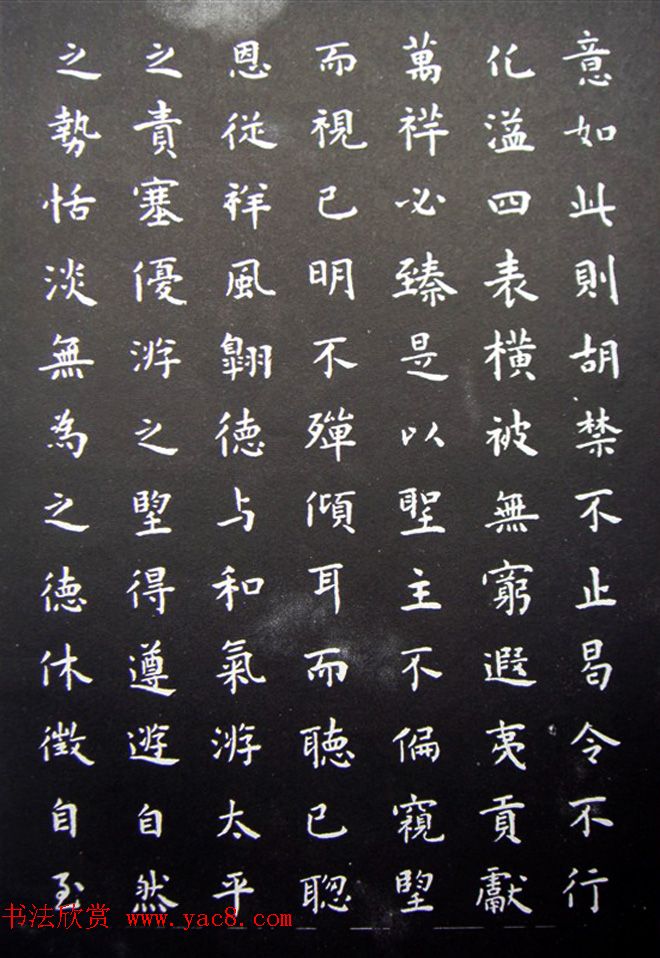 意如此則胡禁不止曷令不行
化溢四表橫被無窮遐夷貢獻
萬祥必臻是以聖主不偏窺望
而視已明不殫傾耳而聽已聰
恩從祥風翱德与和氣游太平
之責塞優游之望得遵遊自然
之勢恬淡無為之德休徵自至
书法欣赏 www.yac8.com